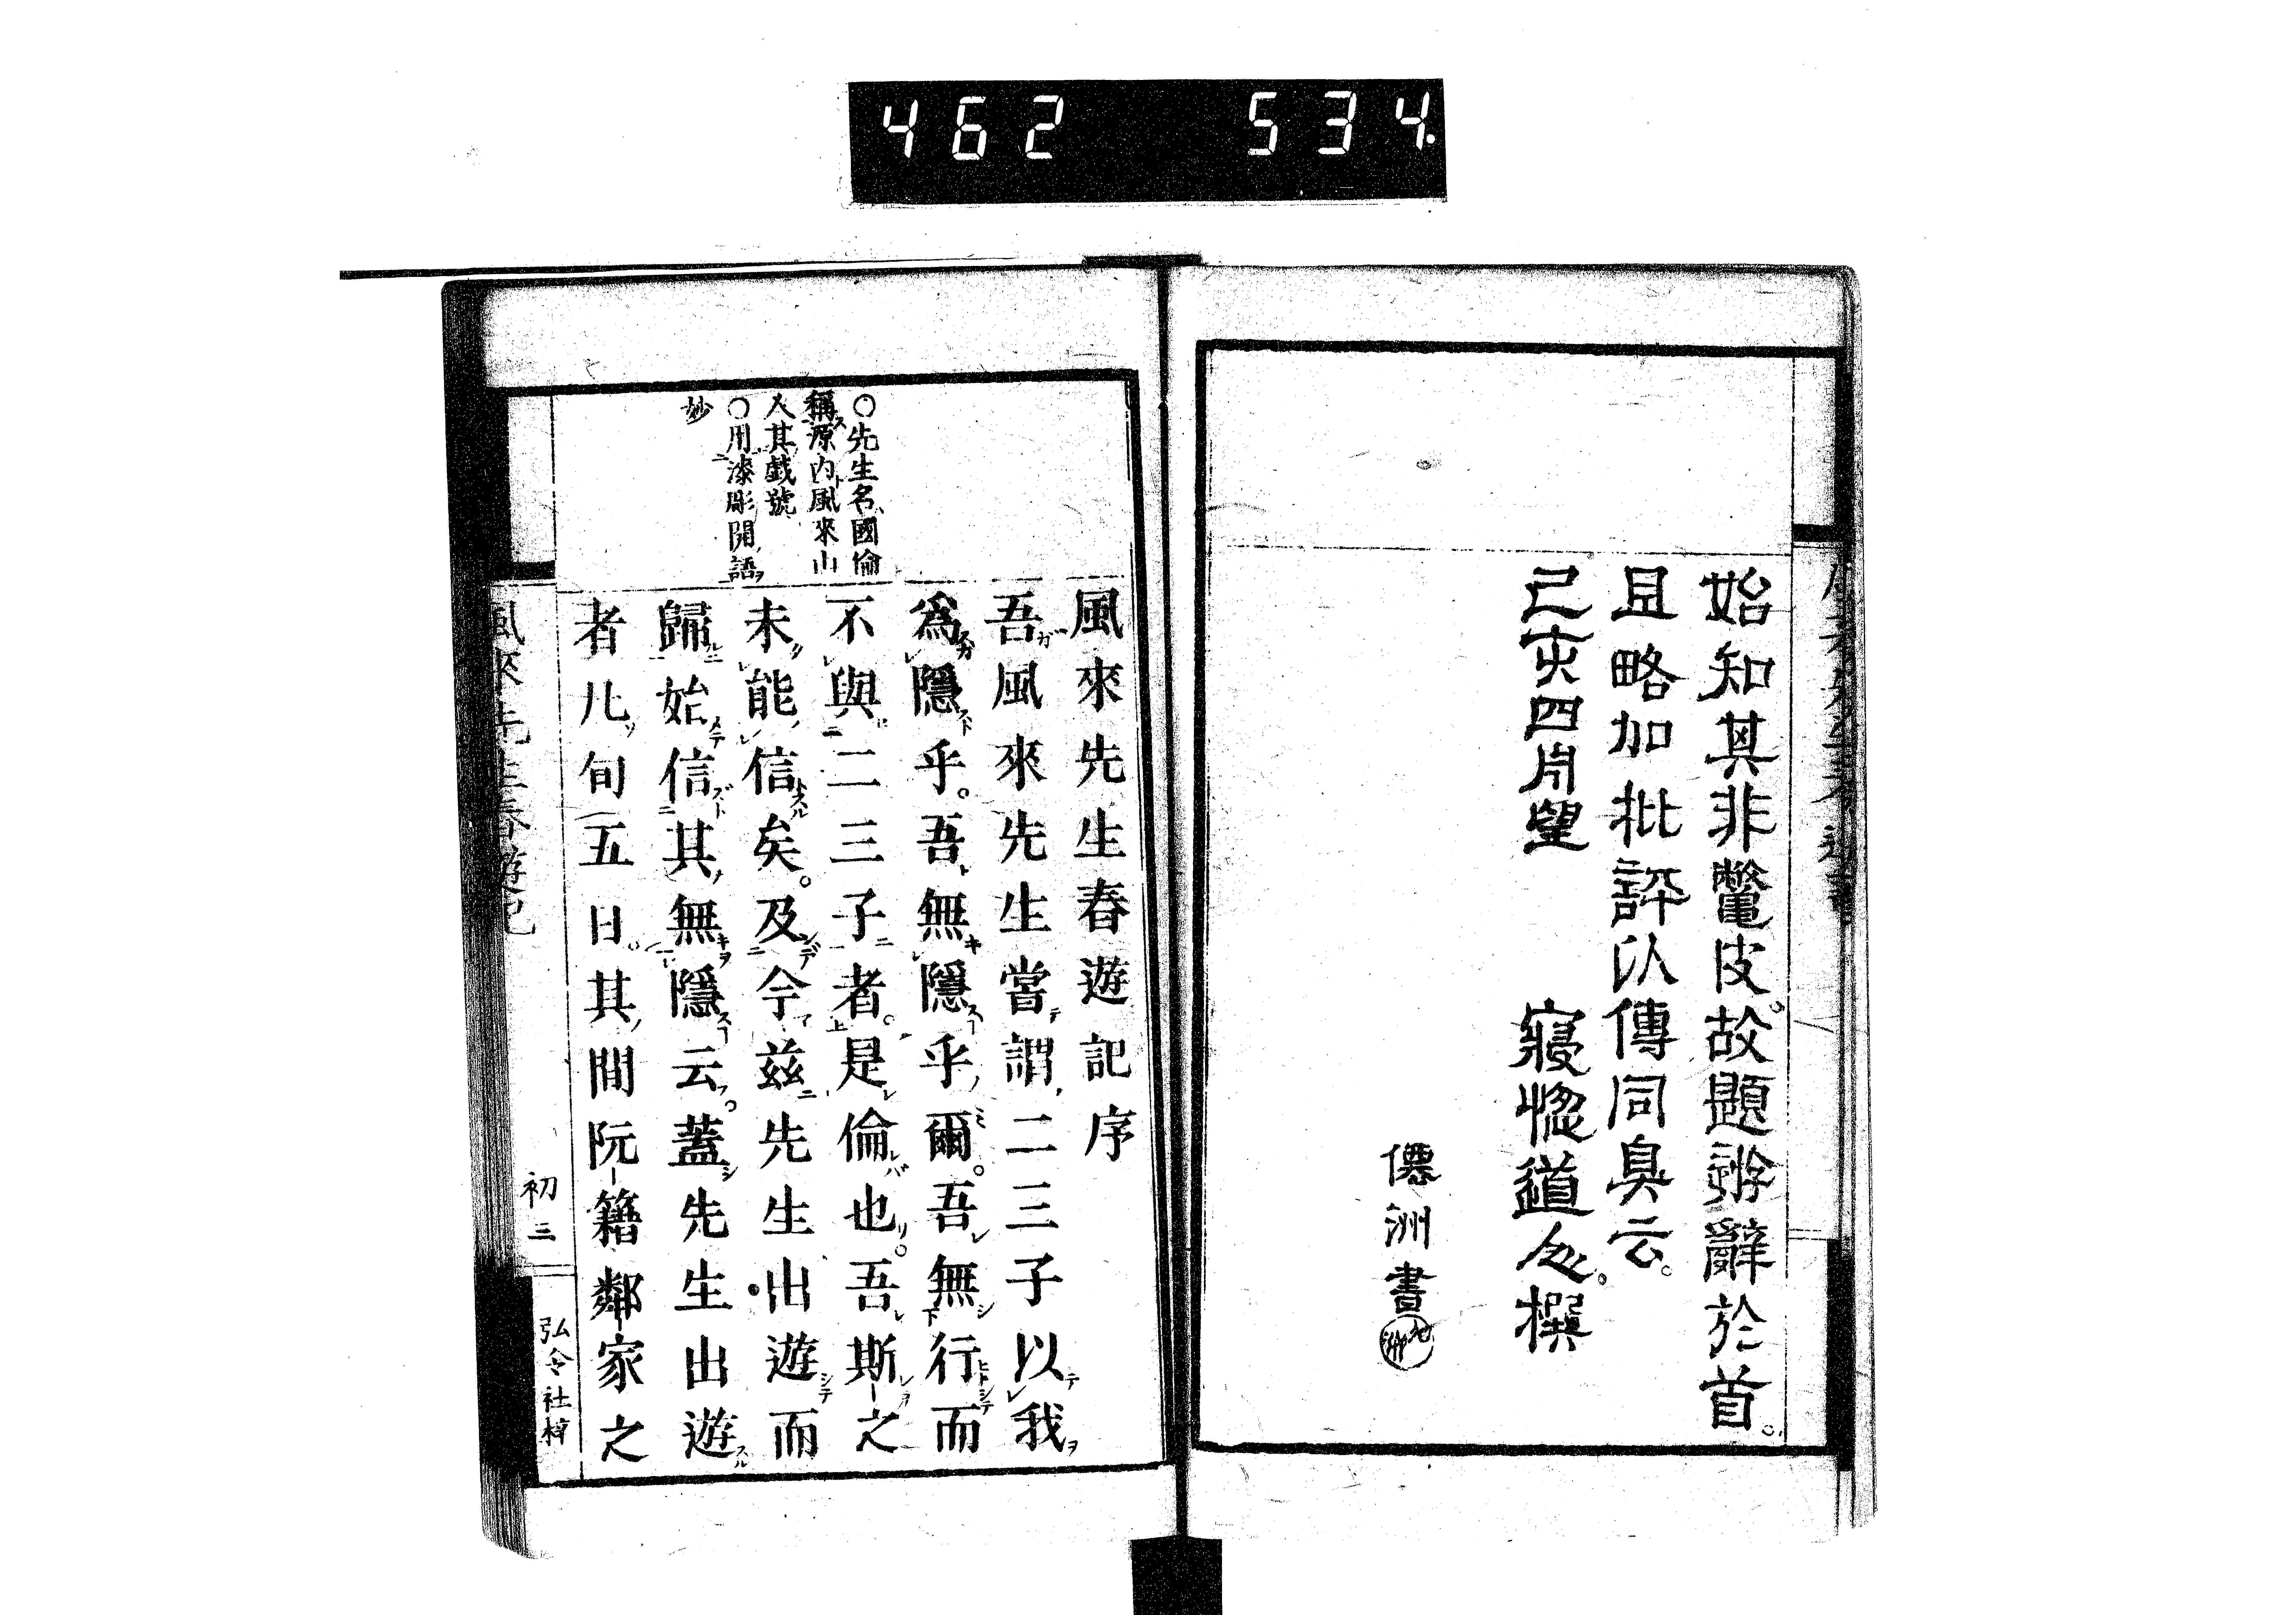 462 534.
始知其非鼈皮故題辯辭於首
且略加批評以傳同臭云
己亥四月望 寢惚道人撰
僊洲書
風來先生春遊記序
吾風來先生嘗謂二三子以我
爲隱乎。吾無隱乎爾。吾無行而
不與二三子者。是倫也。吾斯之
未能信矣。及今茲先生出遊而
歸始信其無隱云。蓋先生出遊
者凡旬五日。其間阮籍鄰家之
○先生名國倫
稱源內風來山
人其戲號
○用漆彫開語
妙
風來先生春遊記
初三
弘令社梓